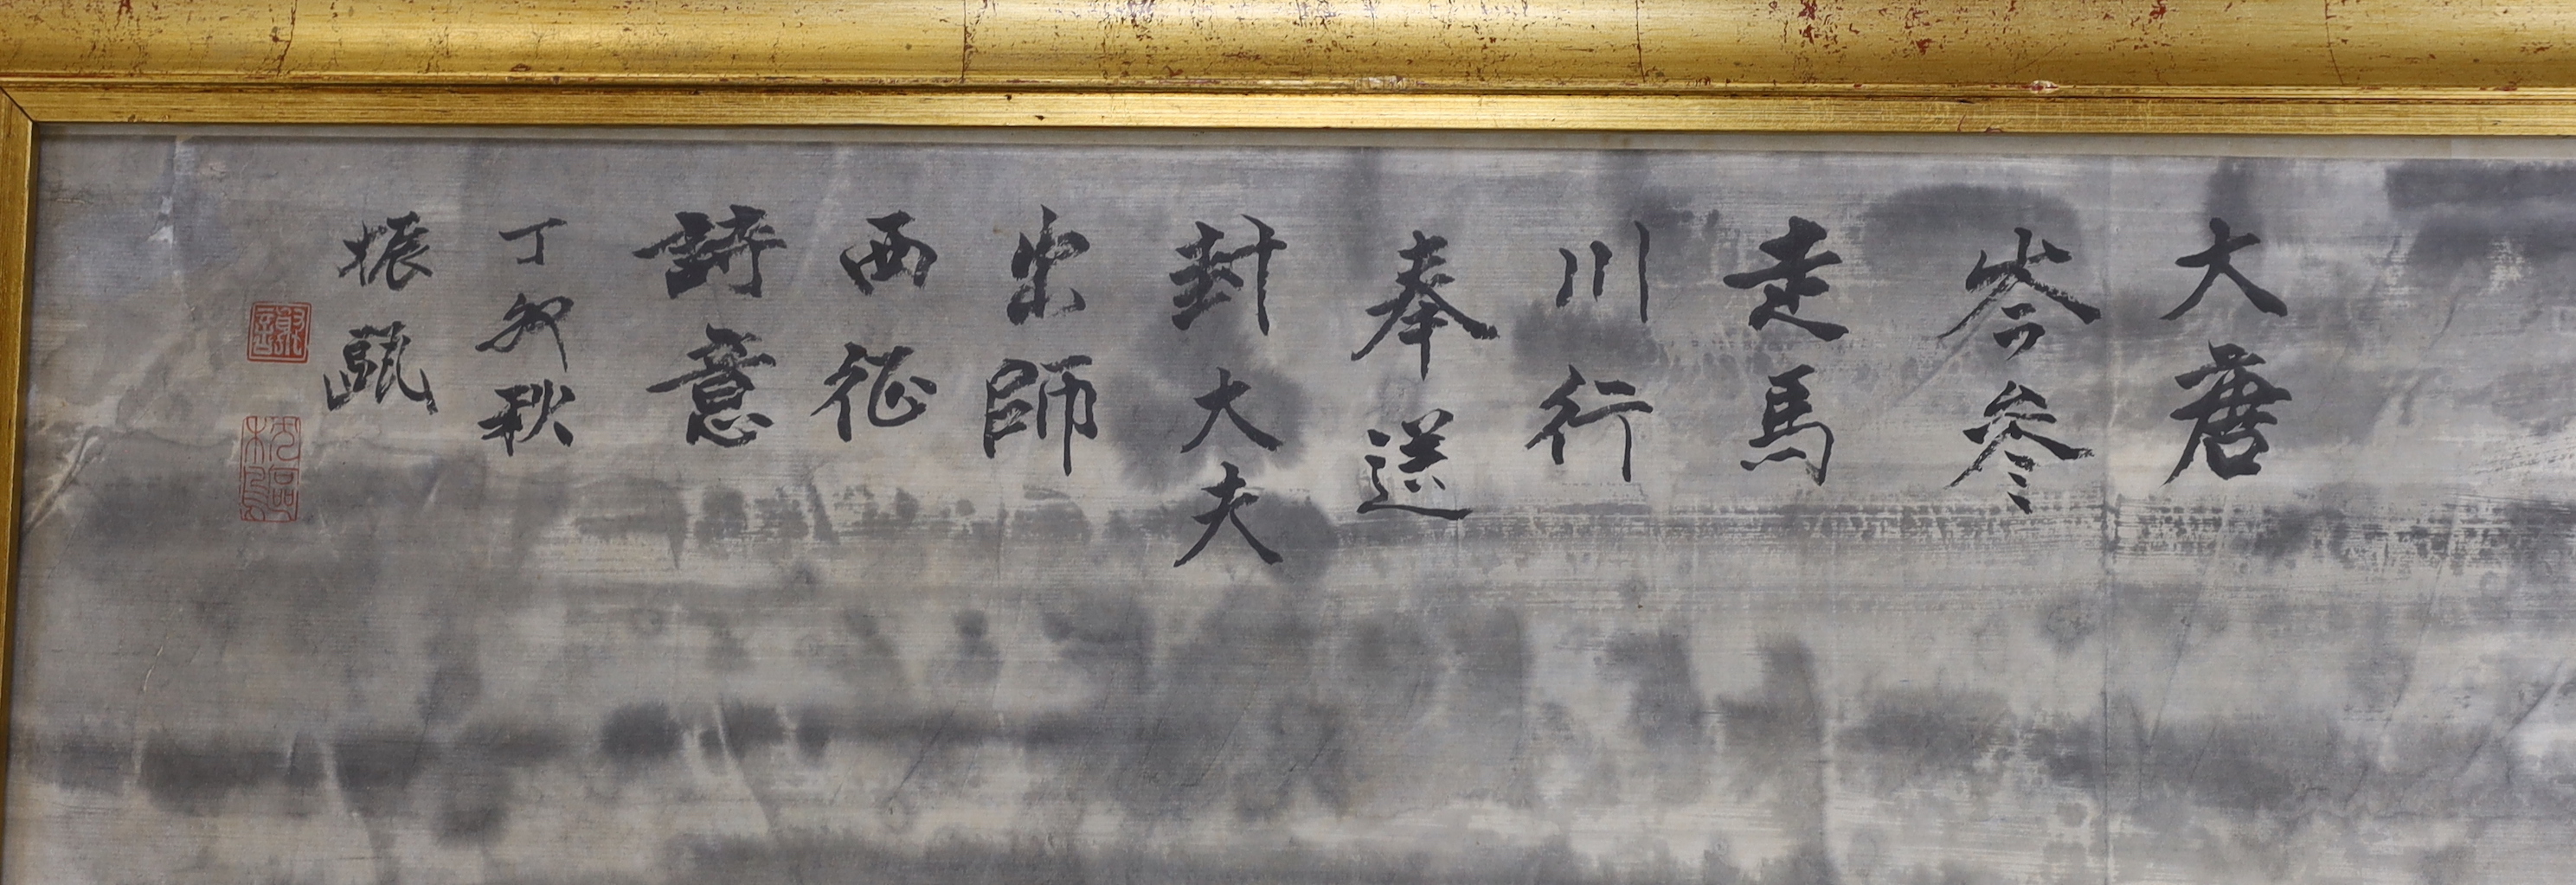 大唐
岑參
走馬
川行
奉送
封大夫
出師
西征
詩意
丁卯秋
振甌
謝